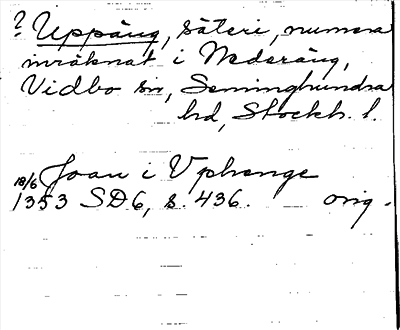 ? Uppäng, säteri, numera
inräknat i Nederäng,
Vidbo sn, Seminghundra
hd, Stockh. l.
Joan i Vphenge
18/6
1353 SD6, s. 436. orig.